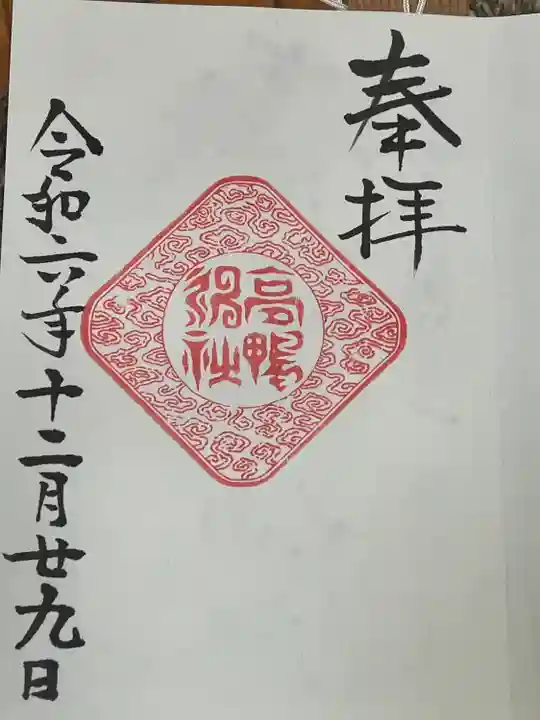 奉拝
高鴨
神社
令和六年十二月廿九日